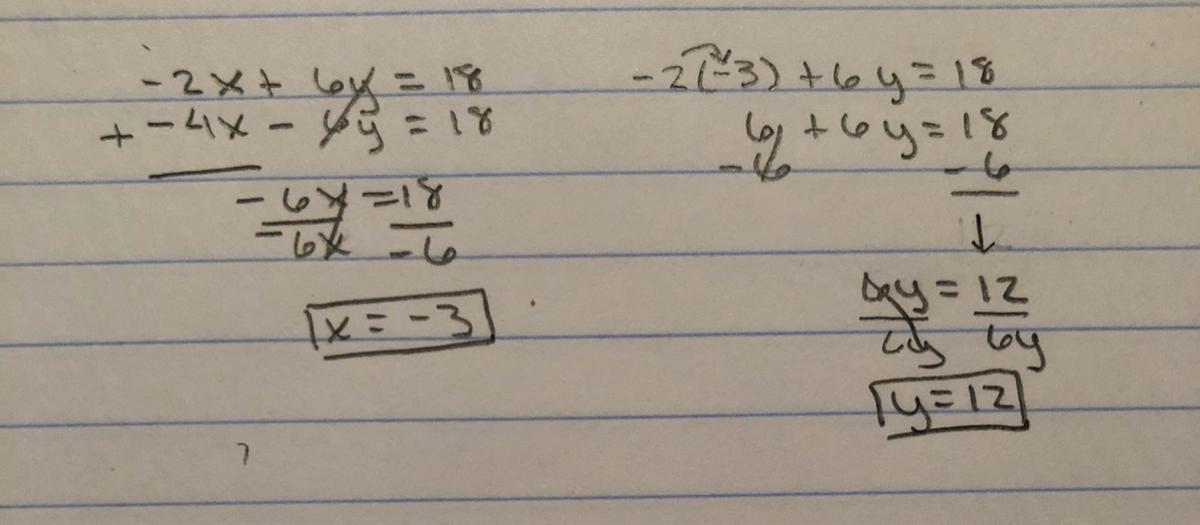 -2x + 6y = 18
+ -4x - 6y = 18
-6x = 18
-6x -6
x = -3
-2(-3) + 6y = 18
6 + 6y = 18
-6 -6
↓
6y = 12
6y 6y
y = 12